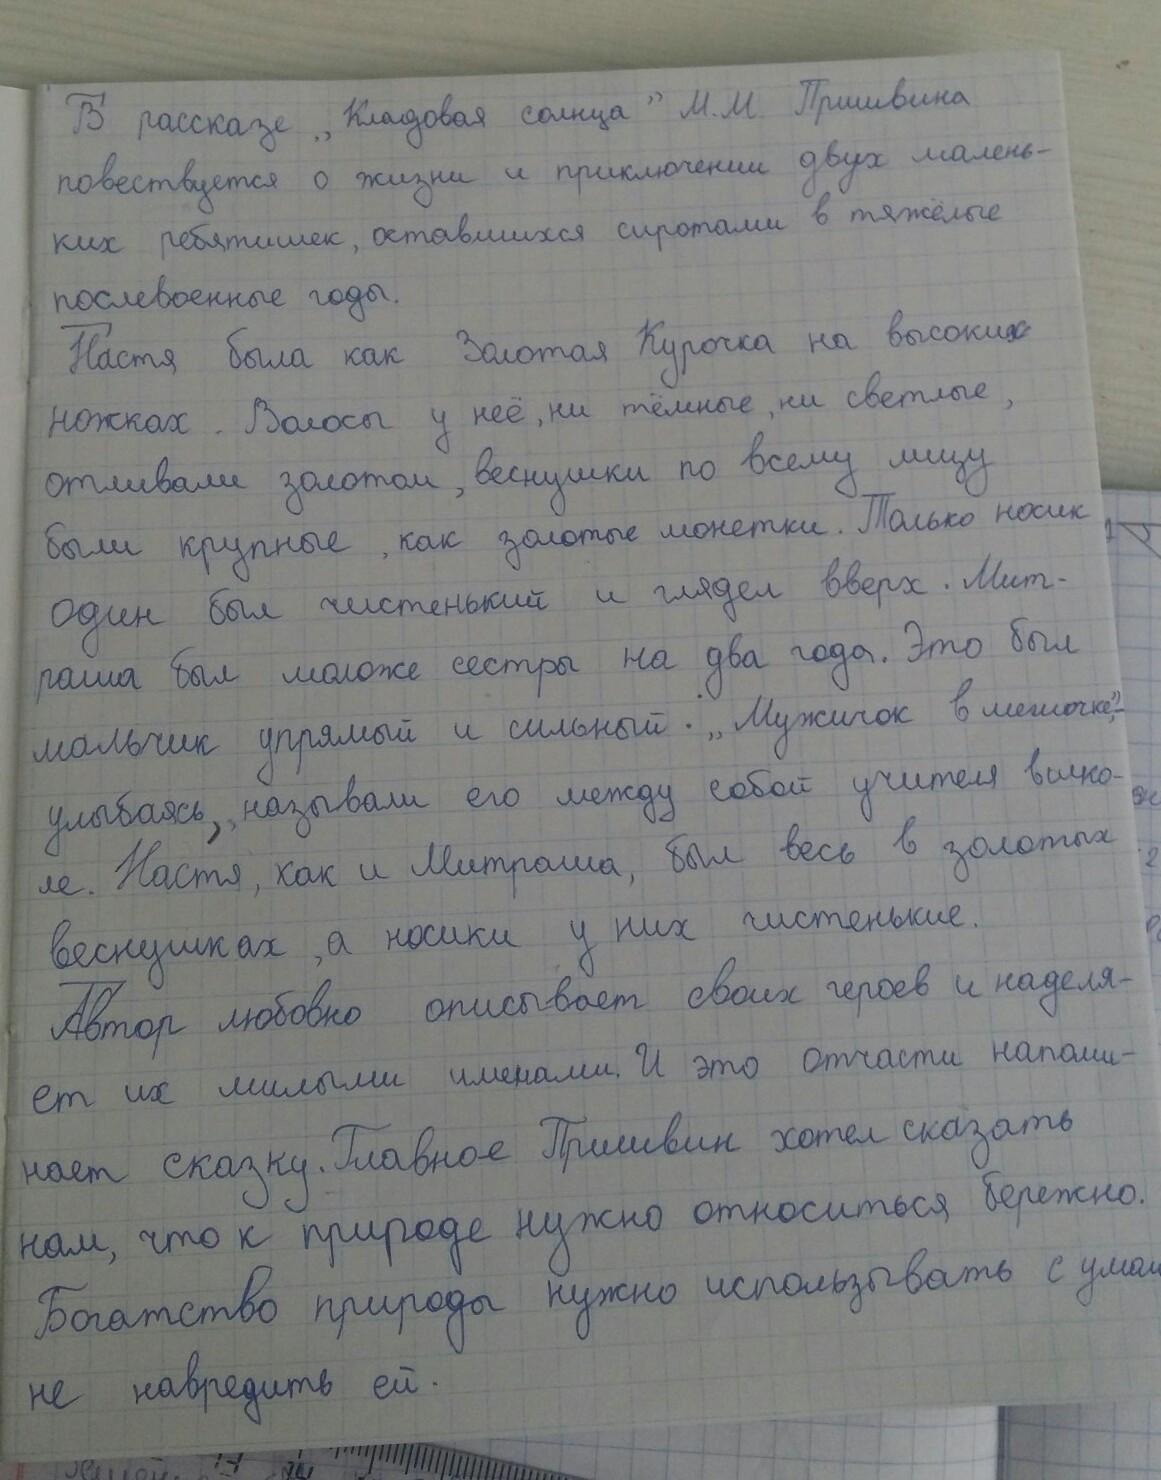 В рассказе „Кладовая солнца” М.М. Пришвина
повествуется о жизни и приключении двух малень-
ких ребятишек, оставшихся сиротами в тяжёлые
послевоенные годы.
Настя была как Золотая Курочка на высоких
ножках. Волосы у неё, ни тёмные, ни светлые,
отливали золотом, веснушки по всему лицу
были крупные, как золотые монетки. Только носик
один был чистенький и глядел вверх. Мит-
раша был моложе сестры на два года. Это был
мальчик упрямый и сильный. „Мужичок в мешочке”,-
улыбаясь, называли его между собой учителя в шко-
ле. Настя, как и Митраша, был весь в золотых
веснушках, а носики у них чистенькие.
Автор любовно описывает своих героев и наделя-
ет их милыми именами. И это отчасти напоми-
нает сказку. Главное Пришвин хотел сказать
нам, что к природе нужно относиться бережно.
Богатство природы нужно использывать с умом
не навредить ей.